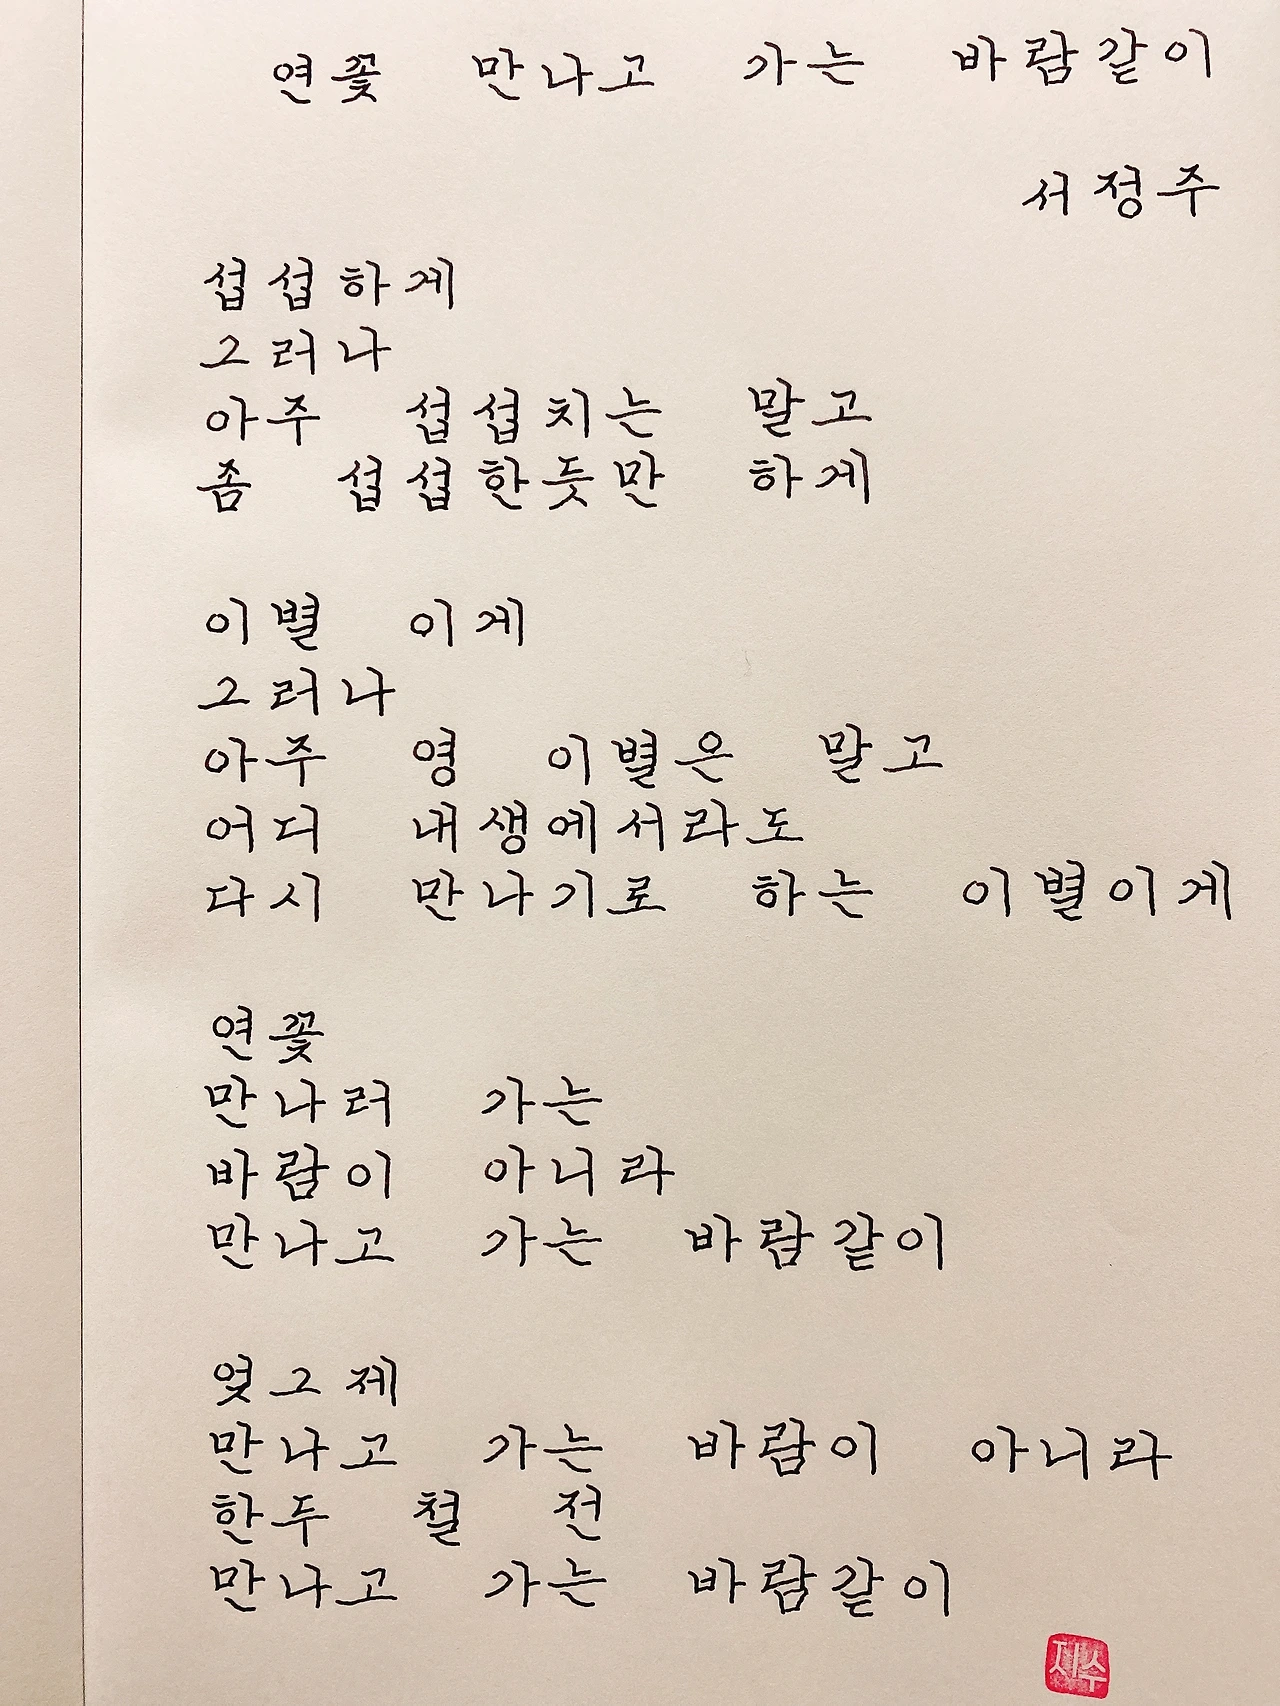 연꽃 만나고 가는 바람같이
서정주
섭섭하게
그러나
아주 섭섭치는 말고
좀 섭섭한듯만 하게
이별 이게
그러나
아주 영 이별은 말고
어디 내생에서라도
다시 만나기로 하는 이별이게
연꽃
만나러 가는
바람이 아니라
만나고 가는 바람같이
엊그제
만나고 가는 바람이 아니라
한두 철 전
만나고 가는 바람같이
제수